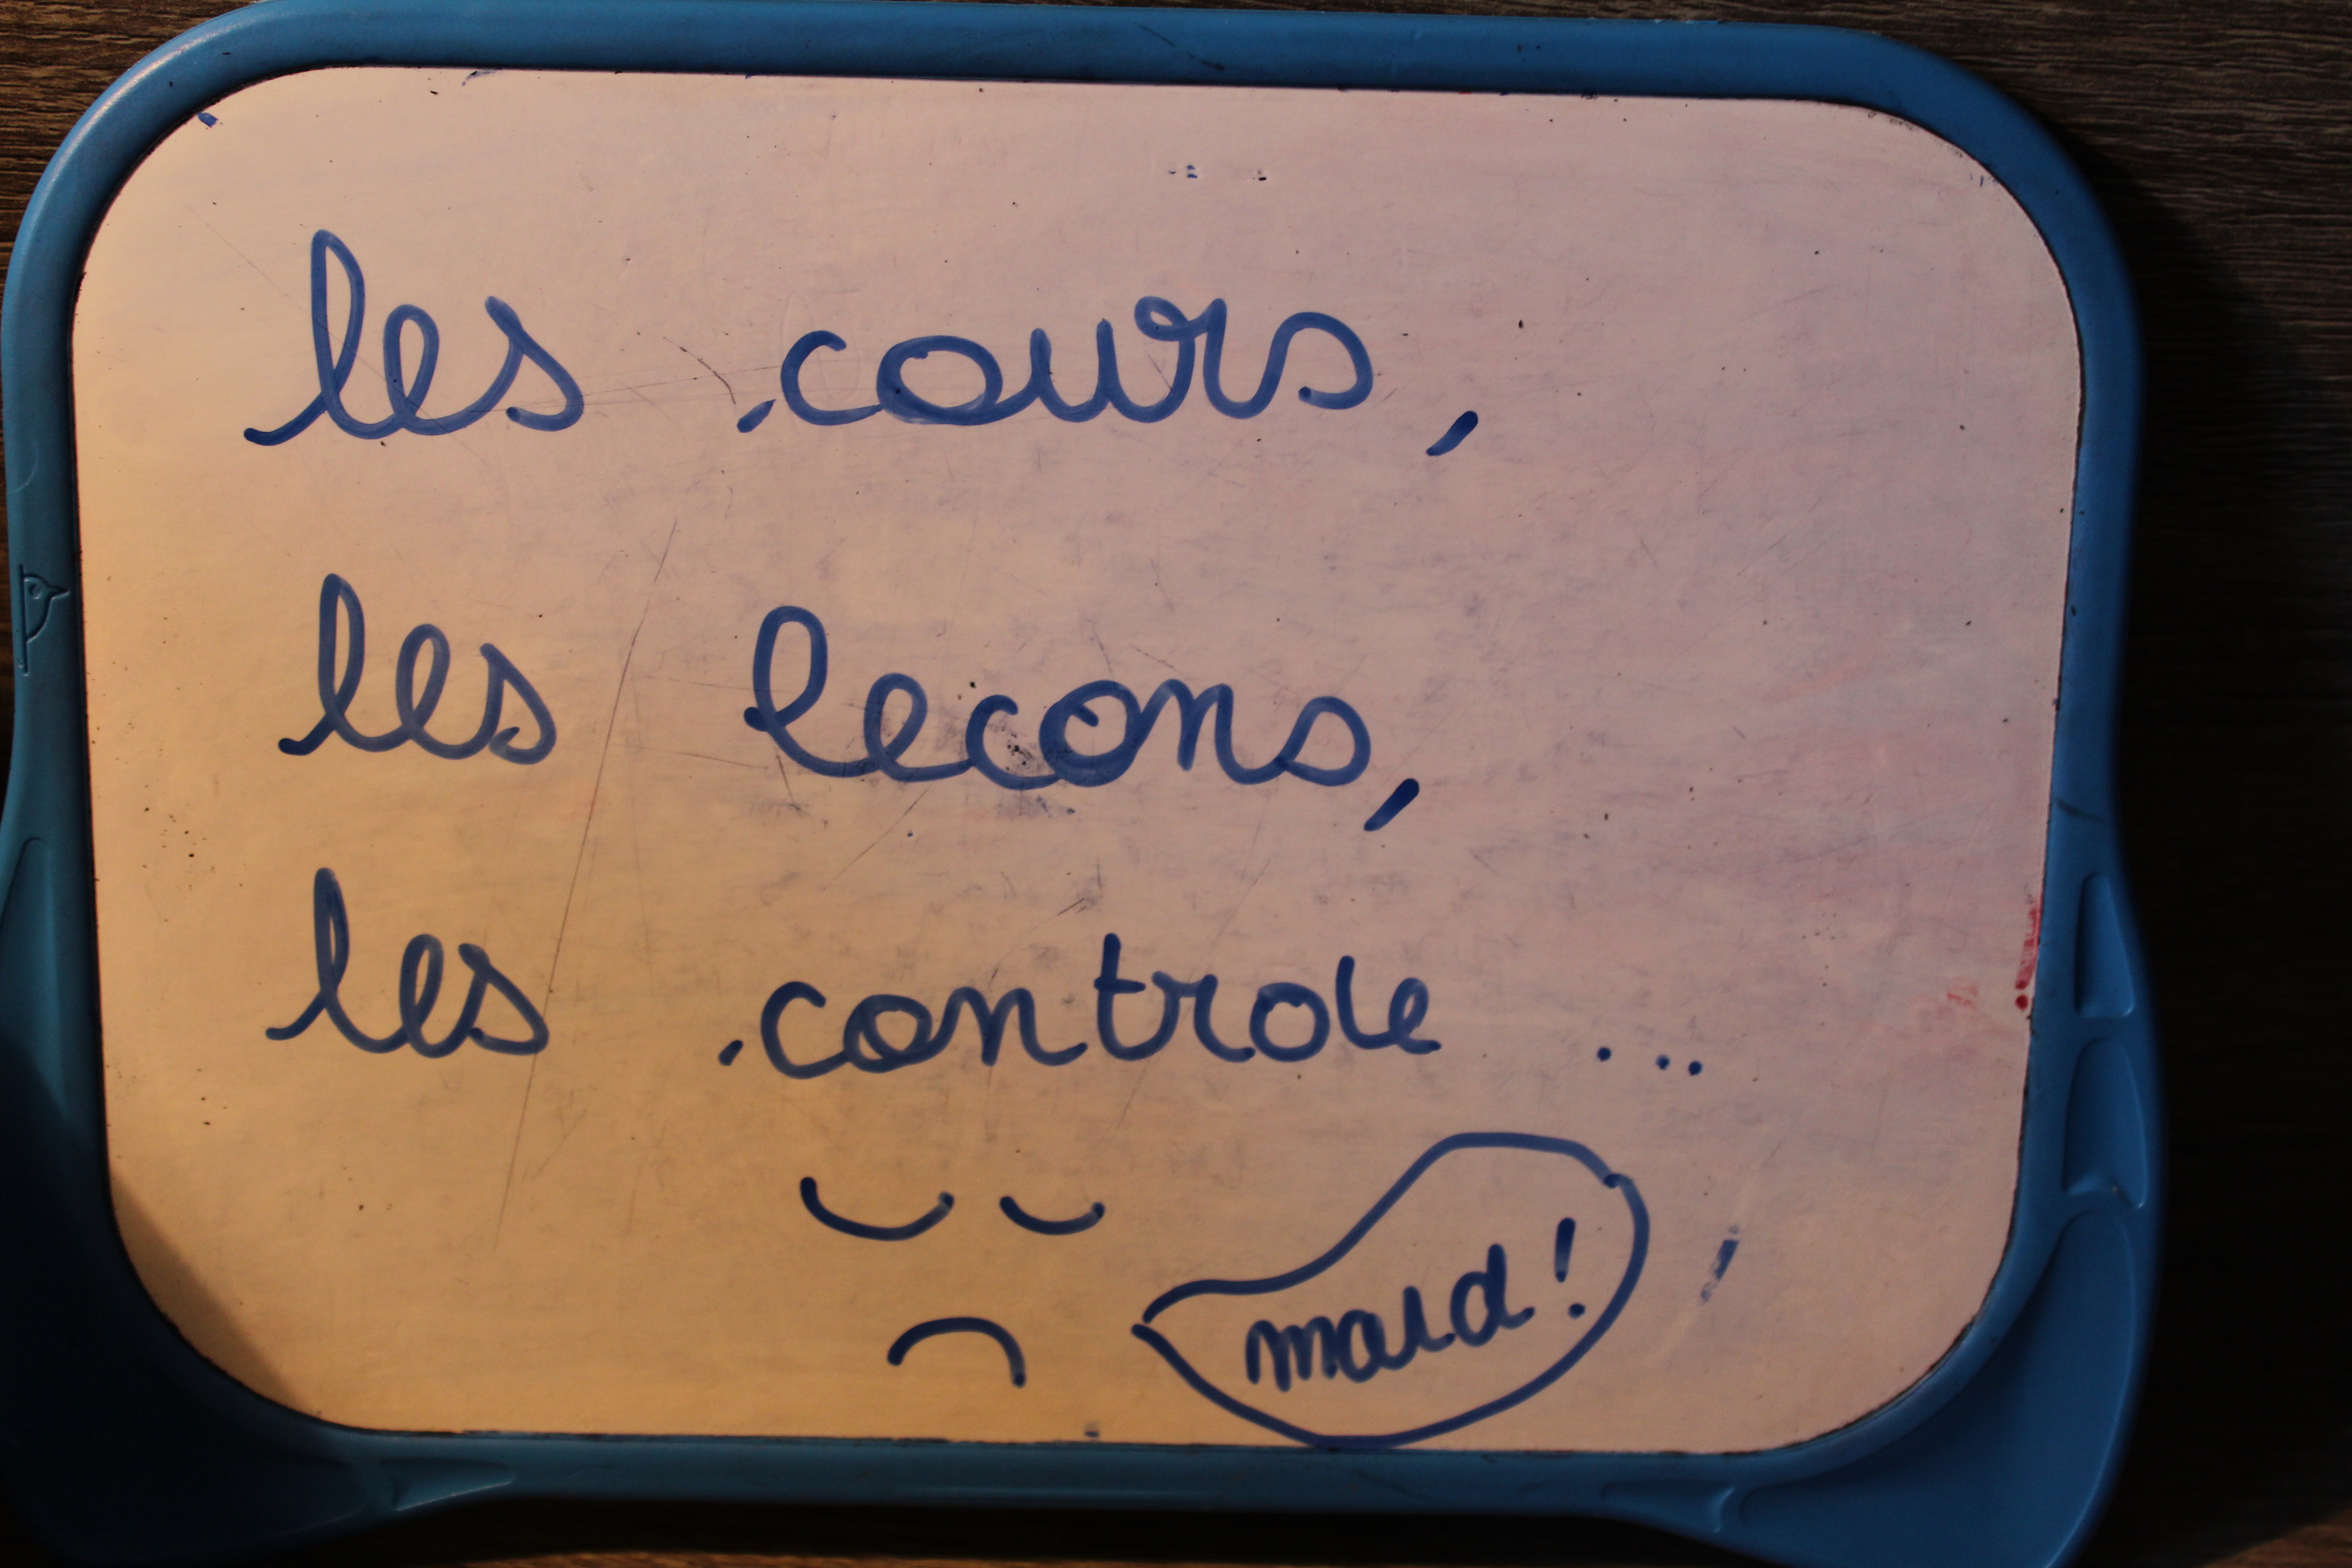 les cours,
les lecons,
les controle ...
mard!